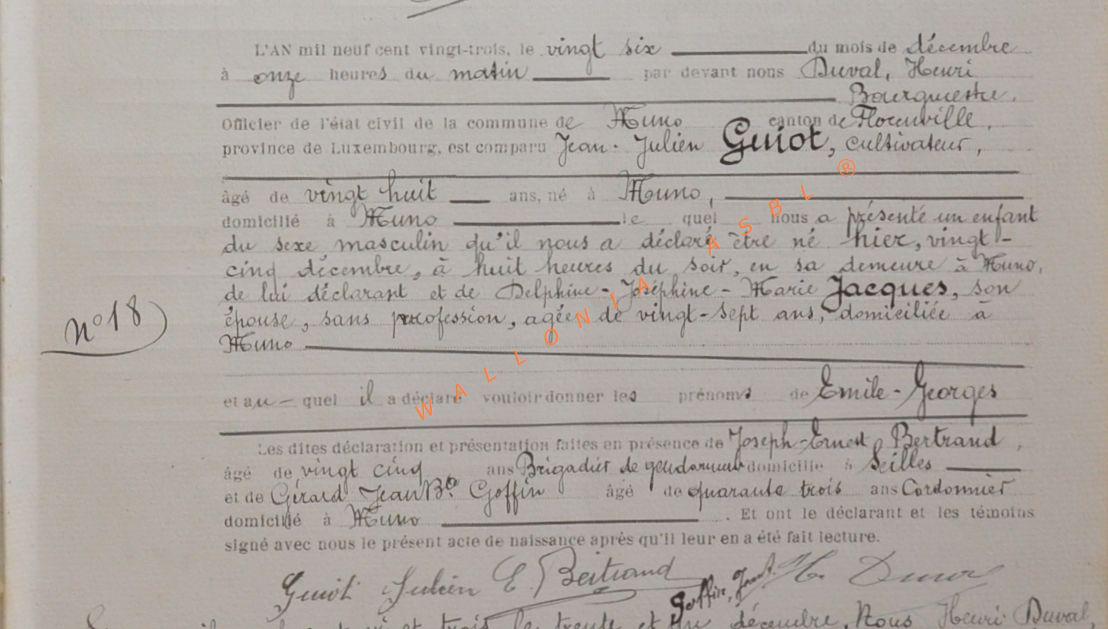 L'AN mil neuf cent vingt-trois, le vingt six du mois de décembre
à onze heures du matin par devant nous Duval, Henri
Bourgmestre,
Officier de l'état civil de la commune de Muno canton de Florenville,
province de Luxembourg, est comparu Jean-Julien Guiot, cultivateur,
âgé de vingt huit ans, né à Muno,
domicilié à Muno le quel nous a présenté un enfant
du sexe masculin qu'il nous a déclaré être né hier, vingt-
cinq décembre, à huit heures du soir, en sa demeure à Muno,
de lui déclarant et de Delphine-Joséphine-Marie Jacques, son
n° 18
épouse, sans profession, agée de vingt-sept ans, domiciliée à
Muno
et au-quel il a déclaré vouloir donner les prénoms de Emile-Georges
Les dites déclaration et présentation faites en présence de Joseph-Ernest Bertrand,
âgé de vingt cinq ans Brigadier de gendarmerie domicilié à Seilles
et de Gérard Jean Bte Goffin âgé de quarante trois ans Cordonnier
domicilié à Muno . Et ont le déclarant et les témoins
signé avec nous le présent acte de naissance après qu'il leur en a été fait lecture.
Guiot Julien E. Bertrand Goffin, H. Duval
et trois le trente et un décembre, Nous Henri Duval,
WALLONIA ASBL ®